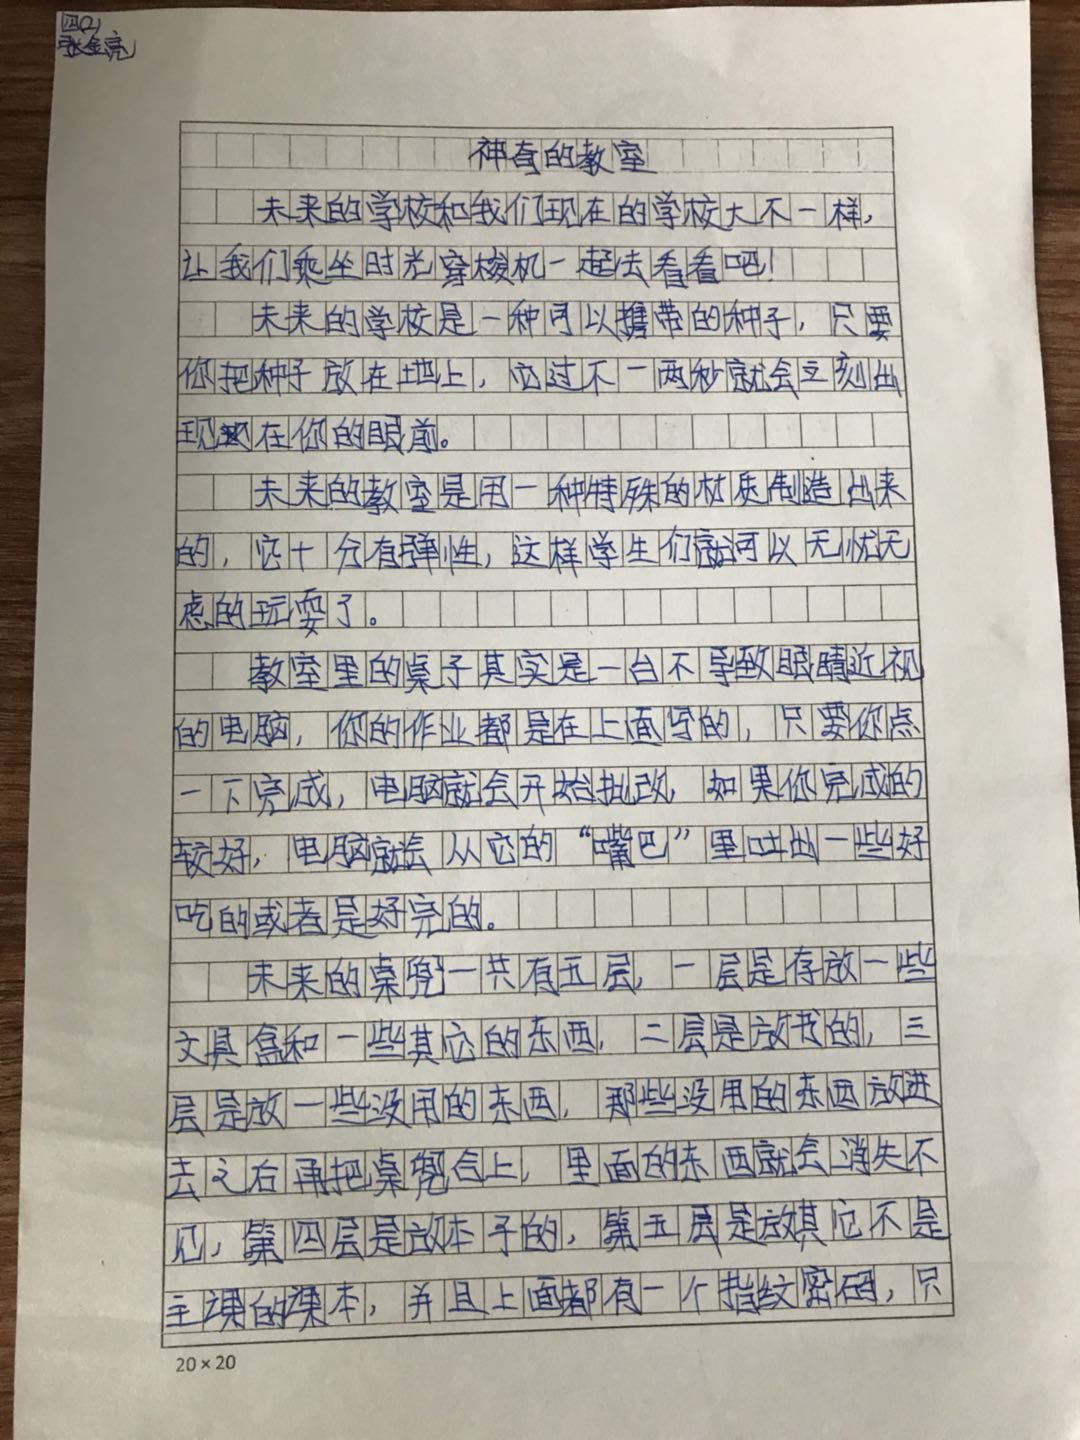 四
张金亮
神奇的教室
未来的学校和我们现在的学校大不一样，
让我们乘坐时光穿梭机一起去看看吧！
未来的学校是一种可以携带的种子，只要
你把种子放在地上，它过不一两秒就会立刻出
现在你的眼前。
未来的教室是用一种特殊的材质制造出来
的，它十分有弹性，这样学生们就可以无忧无
虑的玩耍了。
教室里的桌子其实是一台不导致眼睛近视
的电脑，你的作业都是在上面写的，只要你点
一下完成，电脑就会开始批改，如果你完成的
较好，电脑就会从它的“嘴巴”里吐出一些好
吃的或者是好完的。
未来的桌兜一共有五层，一层是存放一些
文具盒和一些其它的东西，二层是放书的，三
层是放一些没用的东西，那些没用的东西放进
去之后再把桌兜合上，里面的东西就会消失不
见，第四层是放本子的，第五层是放其它不是
主课的课本，并且上面都有一个指纹密码，只
20×20